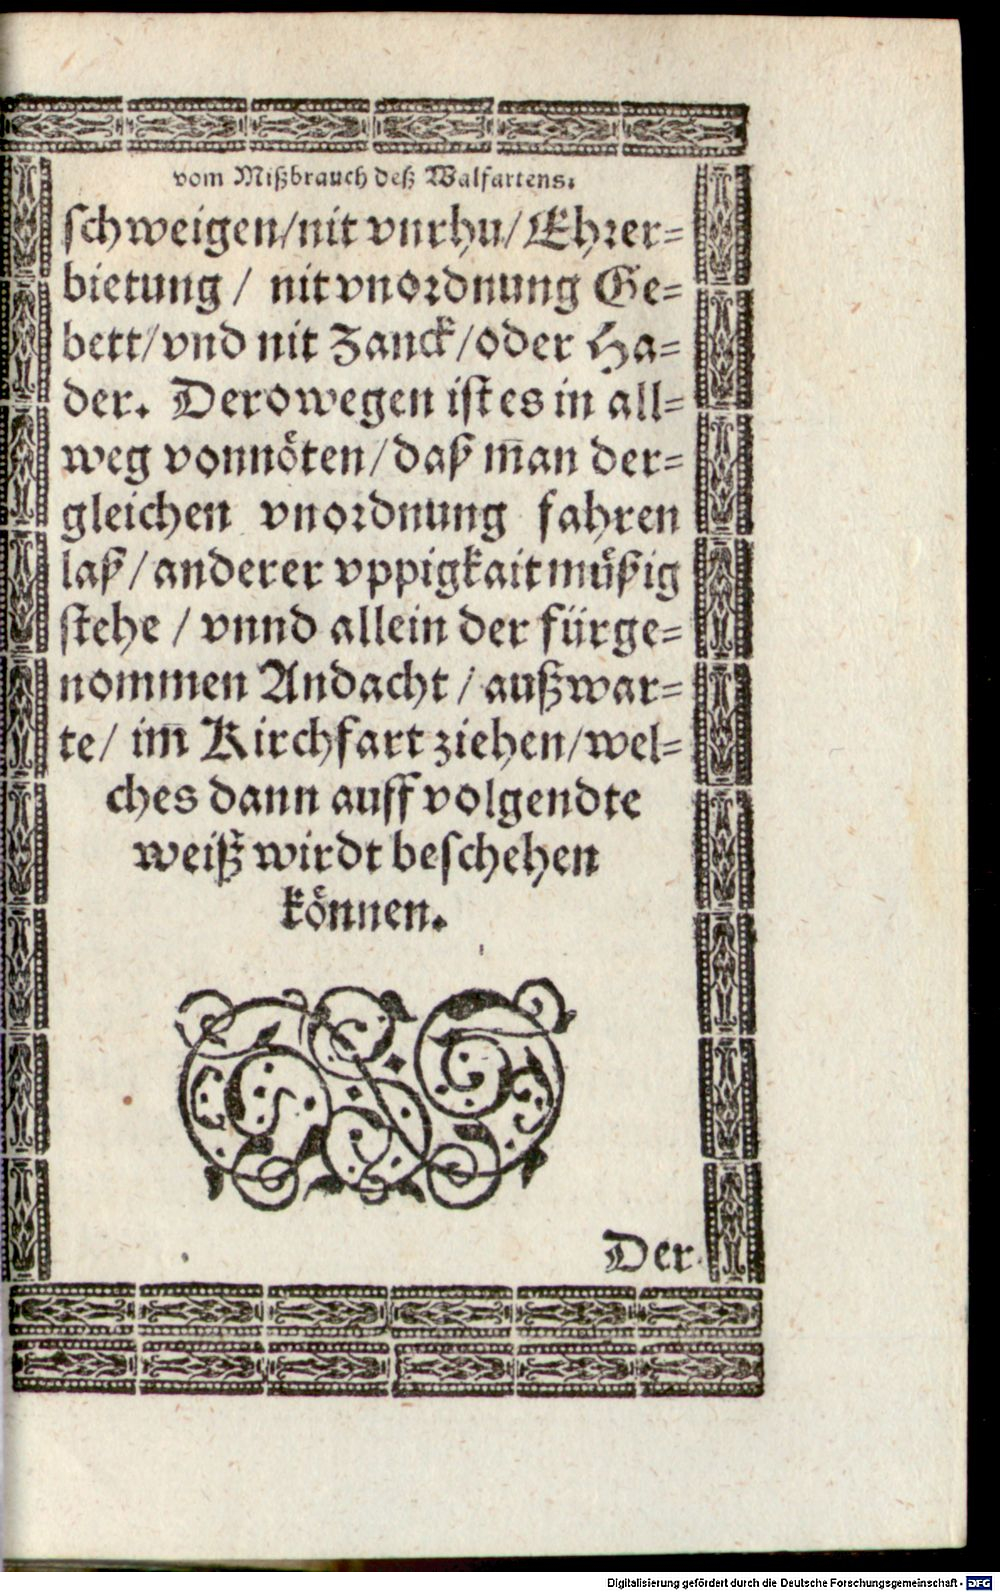 vom Mißbrauch deß Walfartens.
schweigen/nit vnrhu/Ehrer=
bietung / nit vnordnung Ge=
bett/vnd nit Zanck/oder Ha=
der. Derowegen ist es in all=
weg vonnöten/daß m̄an der=
gleichen vnordnung fahren
laß/anderer vppigkait müßig
stehe / vnnd allein der fürge=
nommen Andacht / außwar=
te/ im̄ Kirchfart ziehen/wel=
ches dann auff volgendte
weiß wirdt beschehen
können.
Der
Digitalisierung gefördert durch die Deutsche Forschungsgemeinschaft - DFG